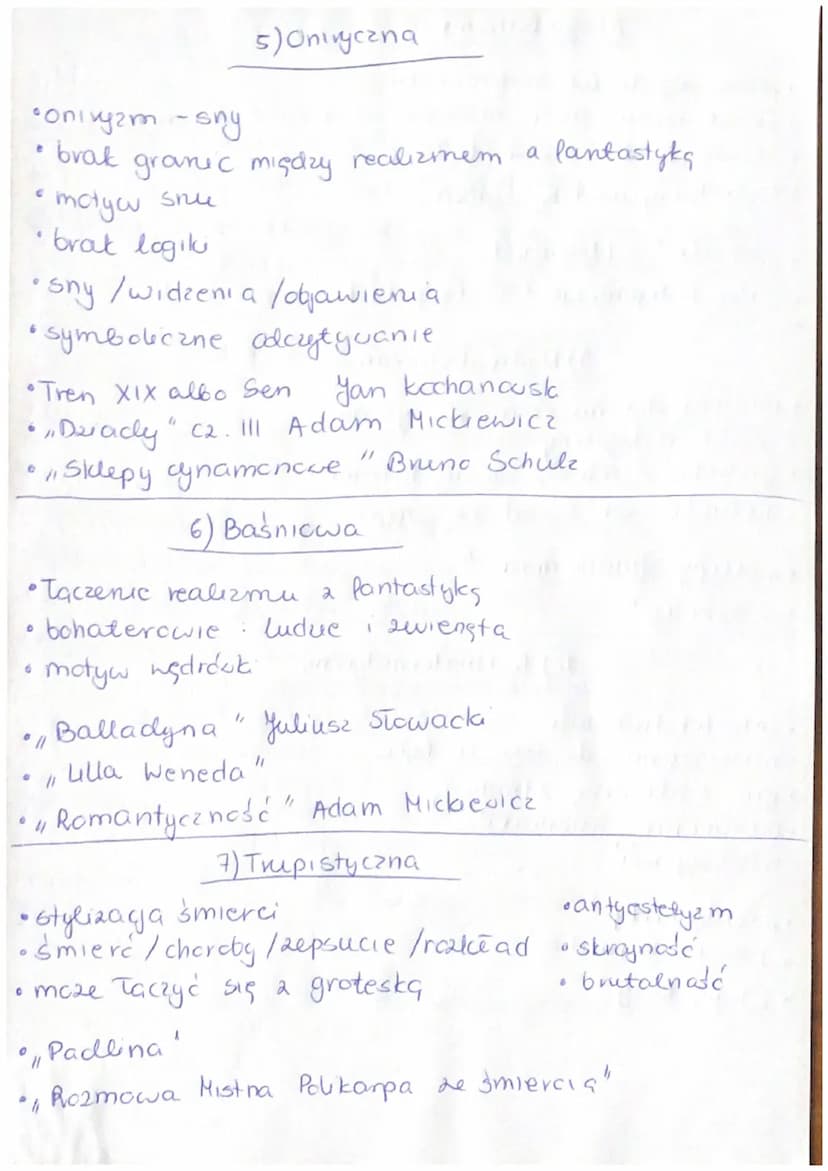 5) Oniryczna
• oniryzm - sny
• brak granic między realizmem a fantastyką
• motyw snu
• brak logiki
• sny / widzenia / objawienia
• symboliczne odczytywanie
• Tren XIX albo Sen Jan Kochanowsk
• „Dziady" cz. III Adam Mickiewicz
• „Sklepy cynamonowe" Bruno Schulz
6) Baśniowa
• Łączenie realizmu z fantastyką
• bohaterowie : ludzie i zwierzęta
• motyw wędrówk
• „Balladyna" Juliusz Słowacki
• „Lilla Weneda"
• „Romantyczność" Adam Mickiewicz
7) Trupistyczna
• stylizacja śmierci
• antyestetyzm
• śmierć / choroby / zepsucie / rozkład
• skrajność
• może łączyć się z groteską
• brutalność
• „Padlina"
• „Rozmowa Mistrza Polikarpa ze śmiercią"